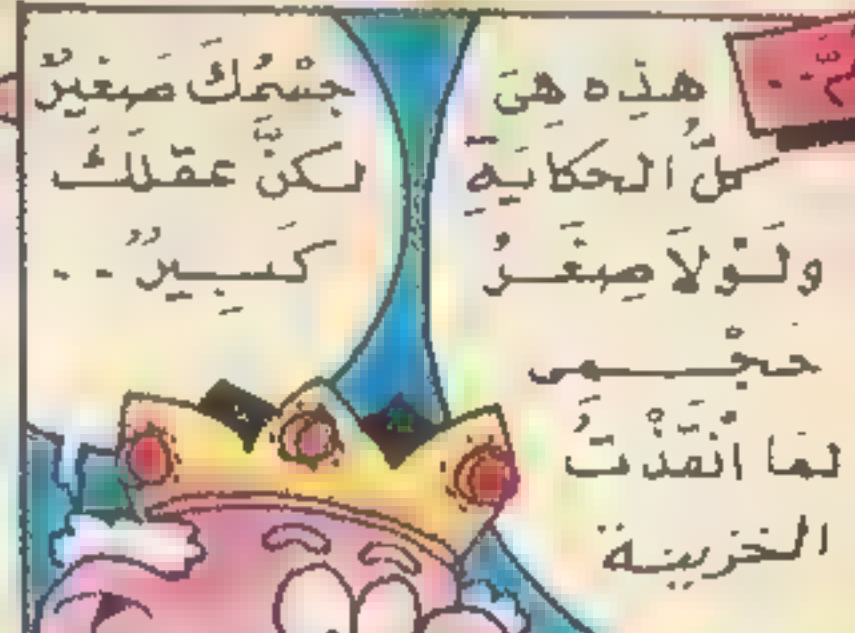 هذِه هىَ
كلُّ الحكَايَةِ
ولَوْلاَ صِغَرُ
حَجْمى
لمَا أنْقَذْتُ
الخزينة
جِسْمُكَ صَغيرٌ
لكنَّ عقلَكَ
كَبِيرٌ ..